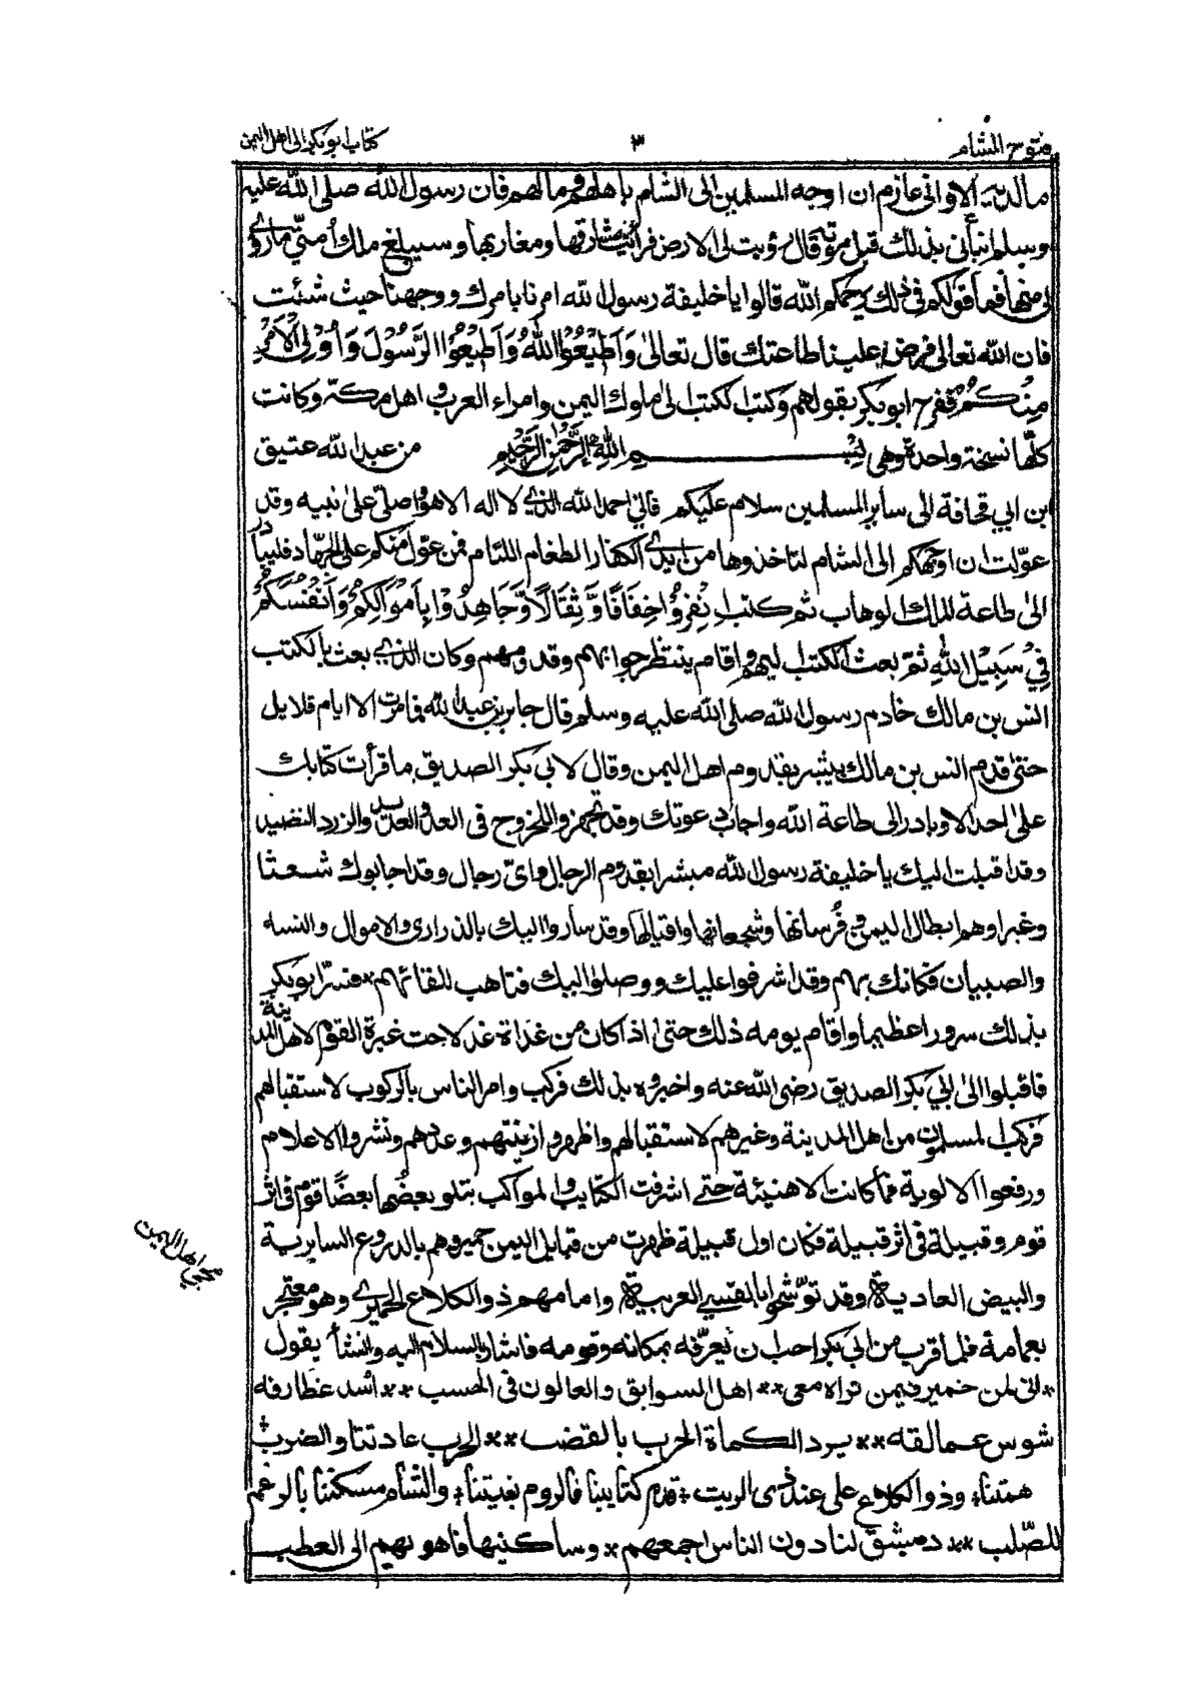 فتوح الشام
٣
كتاب ابو بكر الى اهل اليمن
ما لديه الا وانى عازم ان اوجه المسلمين الى الشام باهلهم وما لهم فان رسول الله صلى الله عليه
وسلم انبأنى بذلك قبل موته وقال زويت لى الارض فرأيت مشارقها ومغاربها وسيبلغ ملك أمتي ما زوى
لى منها فما قولكم فى ذلك رحمكم الله قالوا يا خليفة رسول الله امرنا بامرك ووجهنا حيث شئت
فان الله تعالى فرض علينا طاعتك قال تعالى وَاَطِيْعُوا اللهَ وَاَطِيْعُوا الرَّسُوْلَ وَاُولِى الْاَمْرِ
مِنْكُمْ ففرح ابو بكر بقولهم وكتب الكتب الى ملوك اليمن وامراء العرب و اهل مكة وكانت
كلّها نسخة واحدة وهى بِسْمِ اللهِ الرَّحْمٰنِ الرَّحِيْمِ من عبد الله عتيق
ابن ابي قحافة الى سائر المسلمين سلام عليكم فانى احمد الله الذى لا اله الا هو واصلّى على نبيه وقد
عوّلت ان اوجهكم الى الشام لتاخذوها من ايدى الكفار الطغام اللئام فمن عوّل منكم على الجهاد فليبادر
الى طاعة الملك الوهاب ثم كتب اِنْفِرُوْا خِفَافًا وَّ ثِقَالًا وَّ جَاهِدُوْا بِاَمْوَالِكُمْ وَاَنْفُسِكُمْ
فِيْ سَبِيْلِ اللهِ ثمّ بعث الكتب اليهم واقام ينتظر جوابهم وقدومهم وكان الذى بعث بالكتب
انس بن مالك خادم رسول الله صلى الله عليه وسلم قال جابر بن عبد الله فما مرت الا ايام قلايل
حتى قدم انس بن مالك يبشر بقدوم اهل اليمن وقال لابي بكر الصديق ما قرأت كتابك
على احد الا وبادر الى طاعة الله واجاب دعوتك وقد تجهزوا للخروج فى العدد والعديد والزرد النضيد
وقد اقبلت اليك يا خليفة رسول الله مبشرا بقدوم الرجال واىّ رجال وقد اجابوك شعثا
وغبرا وهم ابطال اليمن و فُرسانها وشجعانها واقيالها وقد ساروا اليك بالذرارى والاموال والنسه
والصبيان فكانك بهم وقد اشرفوا عليك ووصلوا اليك فتاهب للقائهم * فسرّ ابو بكر
بذلك سرورا عظيما واقام يومه ذلك حتى اذا كان من غداة غد لاحت غبرة القوم لاهل المدينة
فاقبلوا الى ابي بكر الصديق رضى الله عنه و اخبروه بذلك فركب وامر الناس بالركوب لاستقبالهم
فركب المسلمون من اهل المدينة وغيرهم لاستقبالهم واظهروا زينتهم وعددهم ونشروا الاعلام
ورفعوا الالوية فما كانت الا هنيئة حتى اشرفت الكتايب والمواكب يتلو بعضُها بعضًا قوم فى اثر
قوم وقبيلة فى اثر قبيلة فكان اول قبيلة ظهرت من قبايل اليمن حمير وهم بالدروع السابرية
والبيض العادية وقد توشّحوا بالقسى العربية وامامهم ذو الكلاع الحميرى وهو معتجر
بعمامة فلما قرب من ابى بكر احب ان يُعرّفه بمكانه وقومه فاشار بالسلام اليه وانشأ يقول
* انى لمن حمير فيمن تراه معى ** اهل السوابق والعالون فى الحسب ** اسد غطارفه
شوس عمالقه ** يرد الكماة الحرب بالقضب ** الحرب عادتنا والضرب
همتنا * وذو الكلاع على عند ذى الريت * قدم كتايبنا فالروم بغيتنا * والشام مسكننا بالرغم
للصّلب ** دمشق لنا دون الناس اجمعهم * وساكنيها فاهويهم الى العطب
مجي اهل اليمن